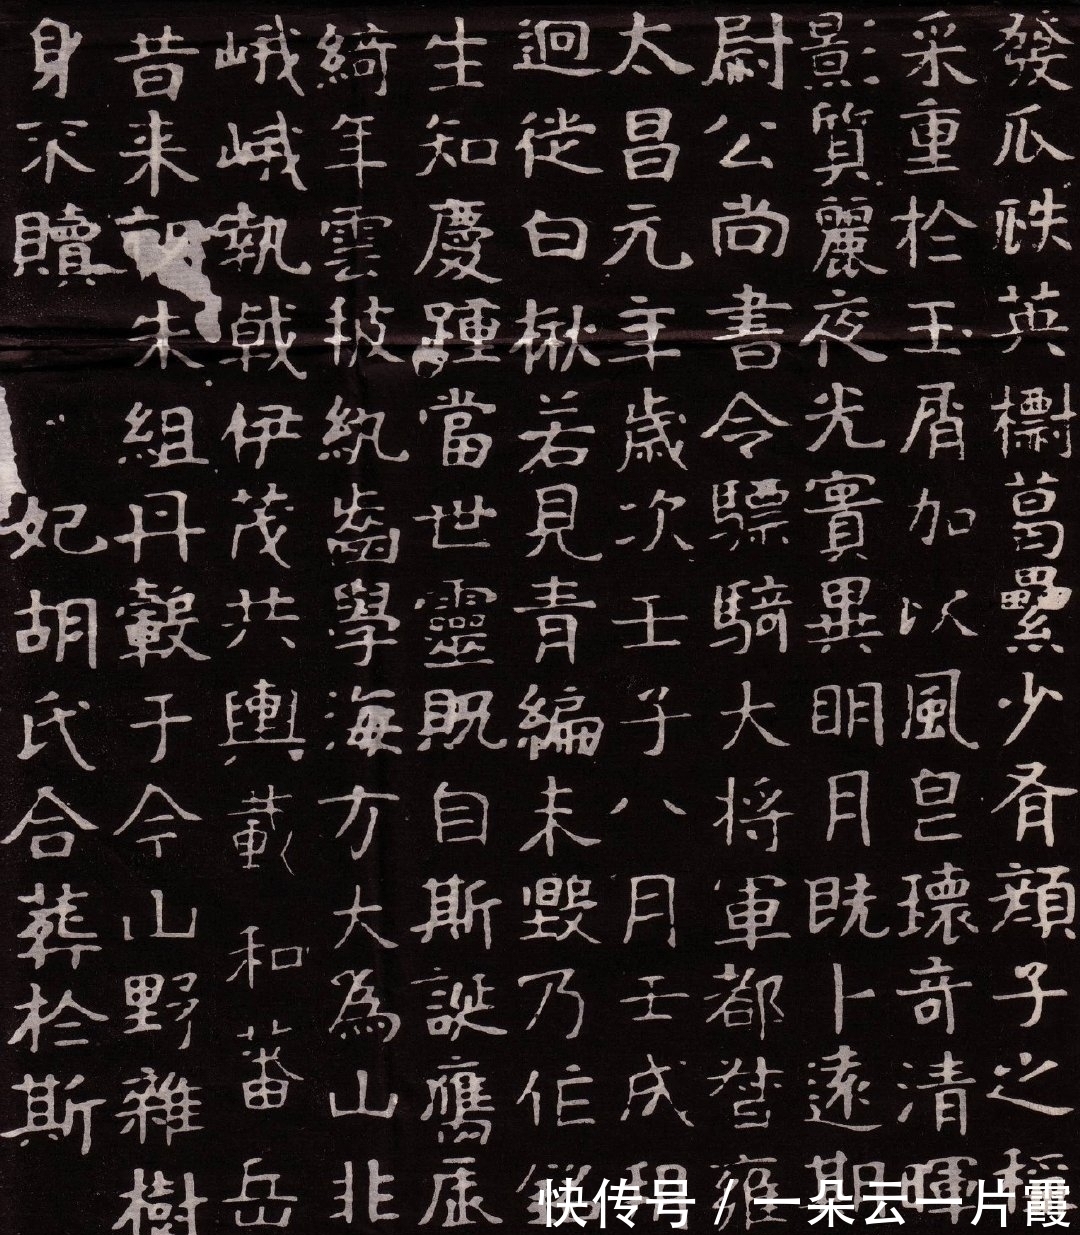 發瓜祑英櫛葛纍少有顏子之稱
采重於玉屑加以風皃瓌奇清暉
影質麗夜光實異明月既卜遠期
尉公尚書令驃騎大将軍都督雍
太昌元年歲次壬子八月壬戌朔
迴從白楸若見青編未毀乃作銘
生知慶踵當世靈既自斯誕膺
綺年雲披紈齒學海方大為山非
峨峨執戟伊茂共輿載和蕃岳
昔来朱組丹轂于今山野雜樹
身不贖 妃胡氏合葬於斯
快传号 / 一朵云一片霞